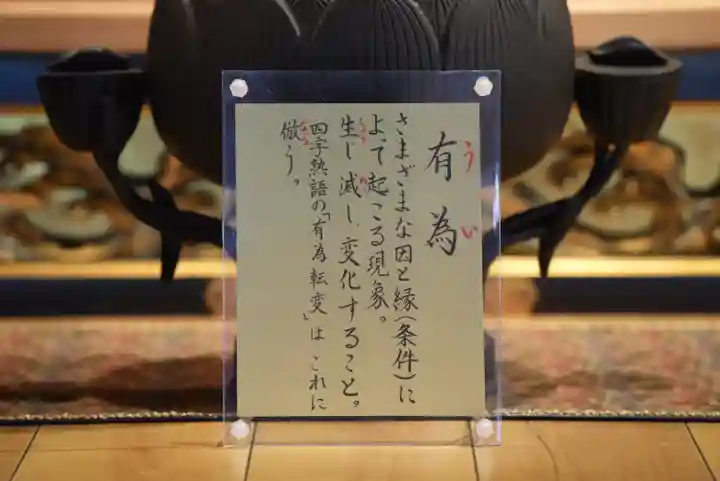 有為
うい
さまざまな因と縁(条件)に
よって起こる現象。
生じ滅し変化すること。
四字熟語の「有為転変」は これに
倣う。